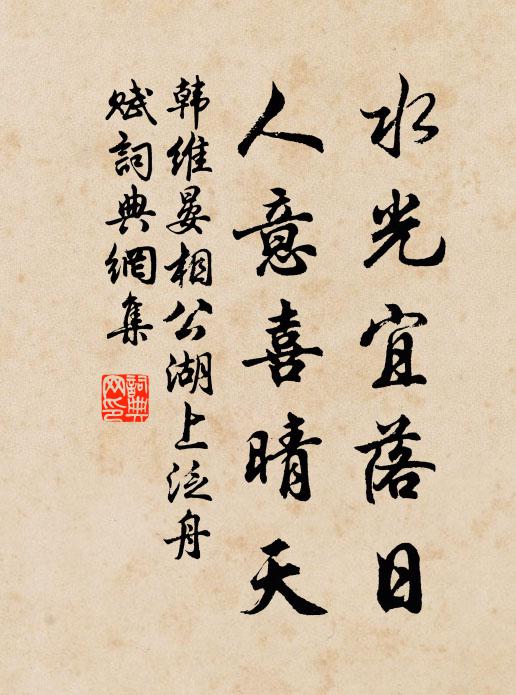 水光宜落日
人意喜晴天
韩维晏相公湖上泛舟
赋詞典網集
詞典网印